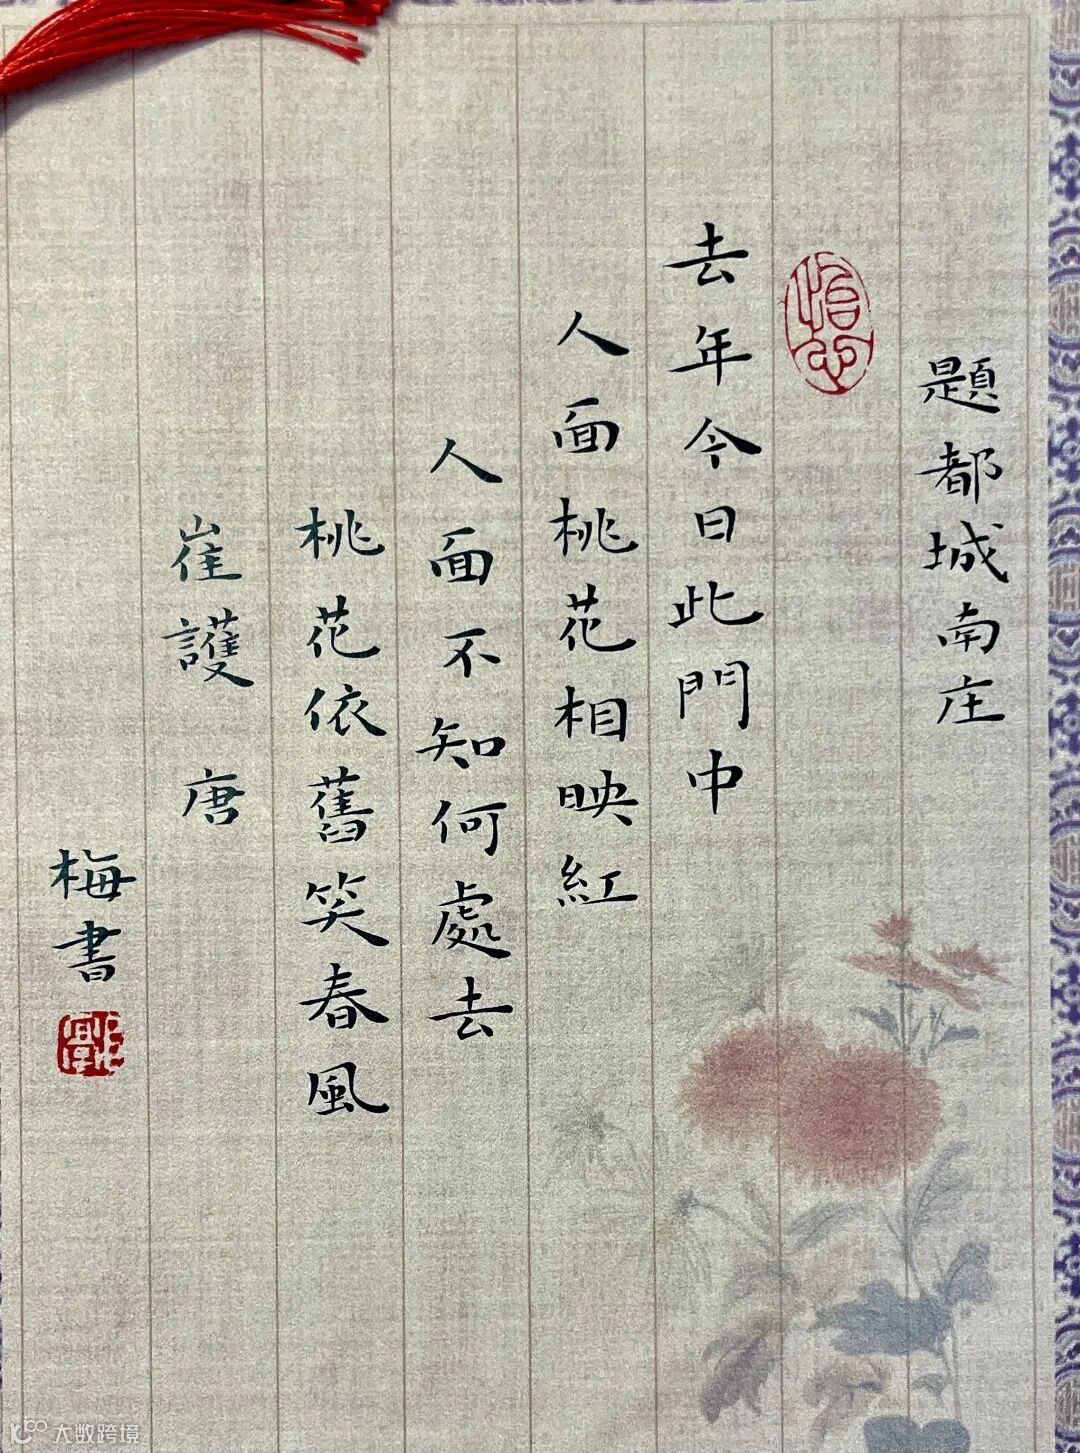 題都城南庄
去年今日此門中
人面桃花相映紅
人面不知何處去
桃花依舊笑春風
崔護 唐
梅書
大数跨境